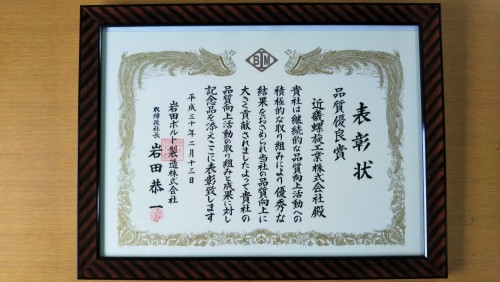 BIM
表彰状
品質優良賞
近畿螺旋工業株式会社殿
貴社は継続的な品質向上活動への
積極的な取り組みにより優秀な
結果をおさめられ当社の品質向上に
大きく貢献されましたよって貴社の
品質向上活動の取り組みと成果に対し
記念品を添えここに表彰致します
平成三十年二月十三日
岩田ボルト製造株式会社
取締役社長 岩田恭一